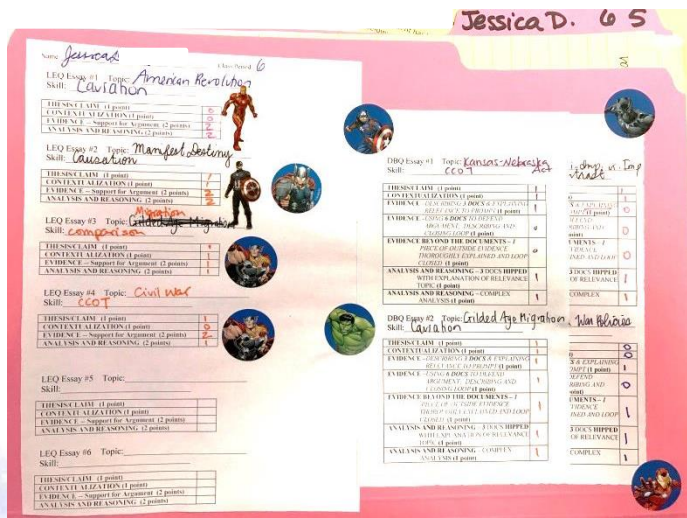 Jessica D. 6 5
Name Jessica D
Class Period 6
LEQ Essay #1 Topic: American Revolution
Skill: Causation
THESIS/CLAIM (1 point) 0
CONTEXTUALIZATION (1 point) 0
EVIDENCE – Support for Argument (2 points) 2
ANALYSIS AND REASONING (2 points) 2
LEQ Essay #2 Topic: Manifest Destiny
Skill: Causation
THESIS/CLAIM (1 point) 1
CONTEXTUALIZATION (1 point) 1
EVIDENCE – Support for Argument (2 points) 2
ANALYSIS AND REASONING (2 points) 2
Migration
LEQ Essay #3 Topic: Gilded Age Migration
Skill: comparison
THESIS/CLAIM (1 point)
CONTEXTUALIZATION (1 point) 1
EVIDENCE – Support for Argument (2 points) 1
ANALYSIS AND REASONING (2 points) 1
LEQ Essay #4 Topic: Civil War
Skill: CCOT
THESIS/CLAIM (1 point) 1
CONTEXTUALIZATION (1 point) 0
EVIDENCE – Support for Argument (2 points) 2
ANALYSIS AND REASONING (2 points) 1
LEQ Essay #5 Topic:
Skill:
THESIS/CLAIM (1 point)
CONTEXTUALIZATION (1 point)
EVIDENCE – Support for Argument (2 points)
ANALYSIS AND REASONING (2 points)
LEQ Essay #6 Topic:
Skill:
THESIS/CLAIM (1 point)
CONTEXTUALIZATION (1 point)
EVIDENCE – Support for Argument (2 points)
ANALYSIS AND REASONING (2 points)
DBQ Essay #1 Topic: Kansas-Nebraska Act
Skill: CCOT
THESIS/CLAIM (1 point) 1
CONTEXTUALIZATION (1 point) 1
EVIDENCE – DESCRIBING 3 DOCS & EXPLAINING
RELEVANCE TO PROMPT (1 point) 1
EVIDENCE – USING 6 DOCS TO DEFEND
ARGUMENT: DESCRIBING AND
CLOSING LOOP (1 point) 0
EVIDENCE BEYOND THE DOCUMENTS – 1
PIECE OF OUTSIDE EVIDENCE
THOROUGHLY EXPLAINED AND LOOP
CLOSED (1 point) 0
ANALYSIS AND REASONING – 3 DOCS HIPPED
WITH EXPLANATION OF RELEVANCE
TOPIC (1 point) 1
ANALYSIS AND REASONING – COMPLEX
ANALYSIS (1 point) 1
DBQ Essay #2 Topic: Gilded Age Migration
Skill: Causation
THESIS/CLAIM (1 point) 1
CONTEXTUALIZATION (1 point) 1
EVIDENCE – DESCRIBING 3 DOCS & EXPLAINING
RELEVANCE TO PROMPT (1 point) 1
EVIDENCE – USING 6 DOCS TO DEFEND
ARGUMENT: DESCRIBING AND
CLOSING LOOP (1 point) 1
EVIDENCE BEYOND THE DOCUMENTS – 1
PIECE OF OUTSIDE EVIDENCE
CLOSED (1 point) 1
ANALYSIS AND REASONING – 3 DOCS HIPPED
WITH EXPLANATION OF RELEVANCE
TOPIC (1 point) 1
ANALYSIS AND REASONING – COMPLEX
ANALYSIS (1 point) 1
vs. Imp
1
1
& EXPLAINING
(1 point) 0
DEFEND
AND 0
MENTS – 1
INED AND LOOP 0
3 DOCS HIPPED
OF RELEVANCE 1
COMPLEX 1
War Policies
0
0
S & EXPLAINING
1
DEFEND
RIBING AND 0
MENTS – 1
INED AND LOOP 1
3 DOCS HIPPED
OF RELEVANCE 1
COMPLEX 1